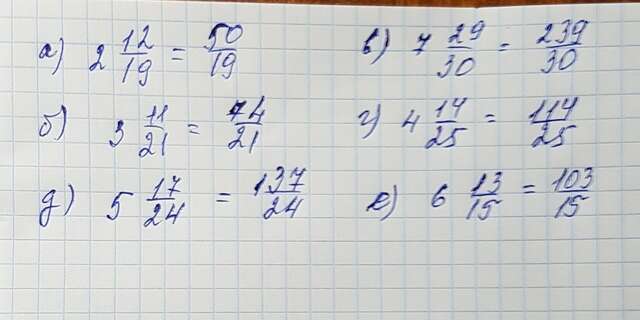 а) 2 12/19 = 50/19 в) 7 29/30 = 239/30
б) 3 11/21 = 74/21 г) 4 14/25 = 114/25
д) 5 17/24 = 137/24 е) 6 13/15 = 103/15